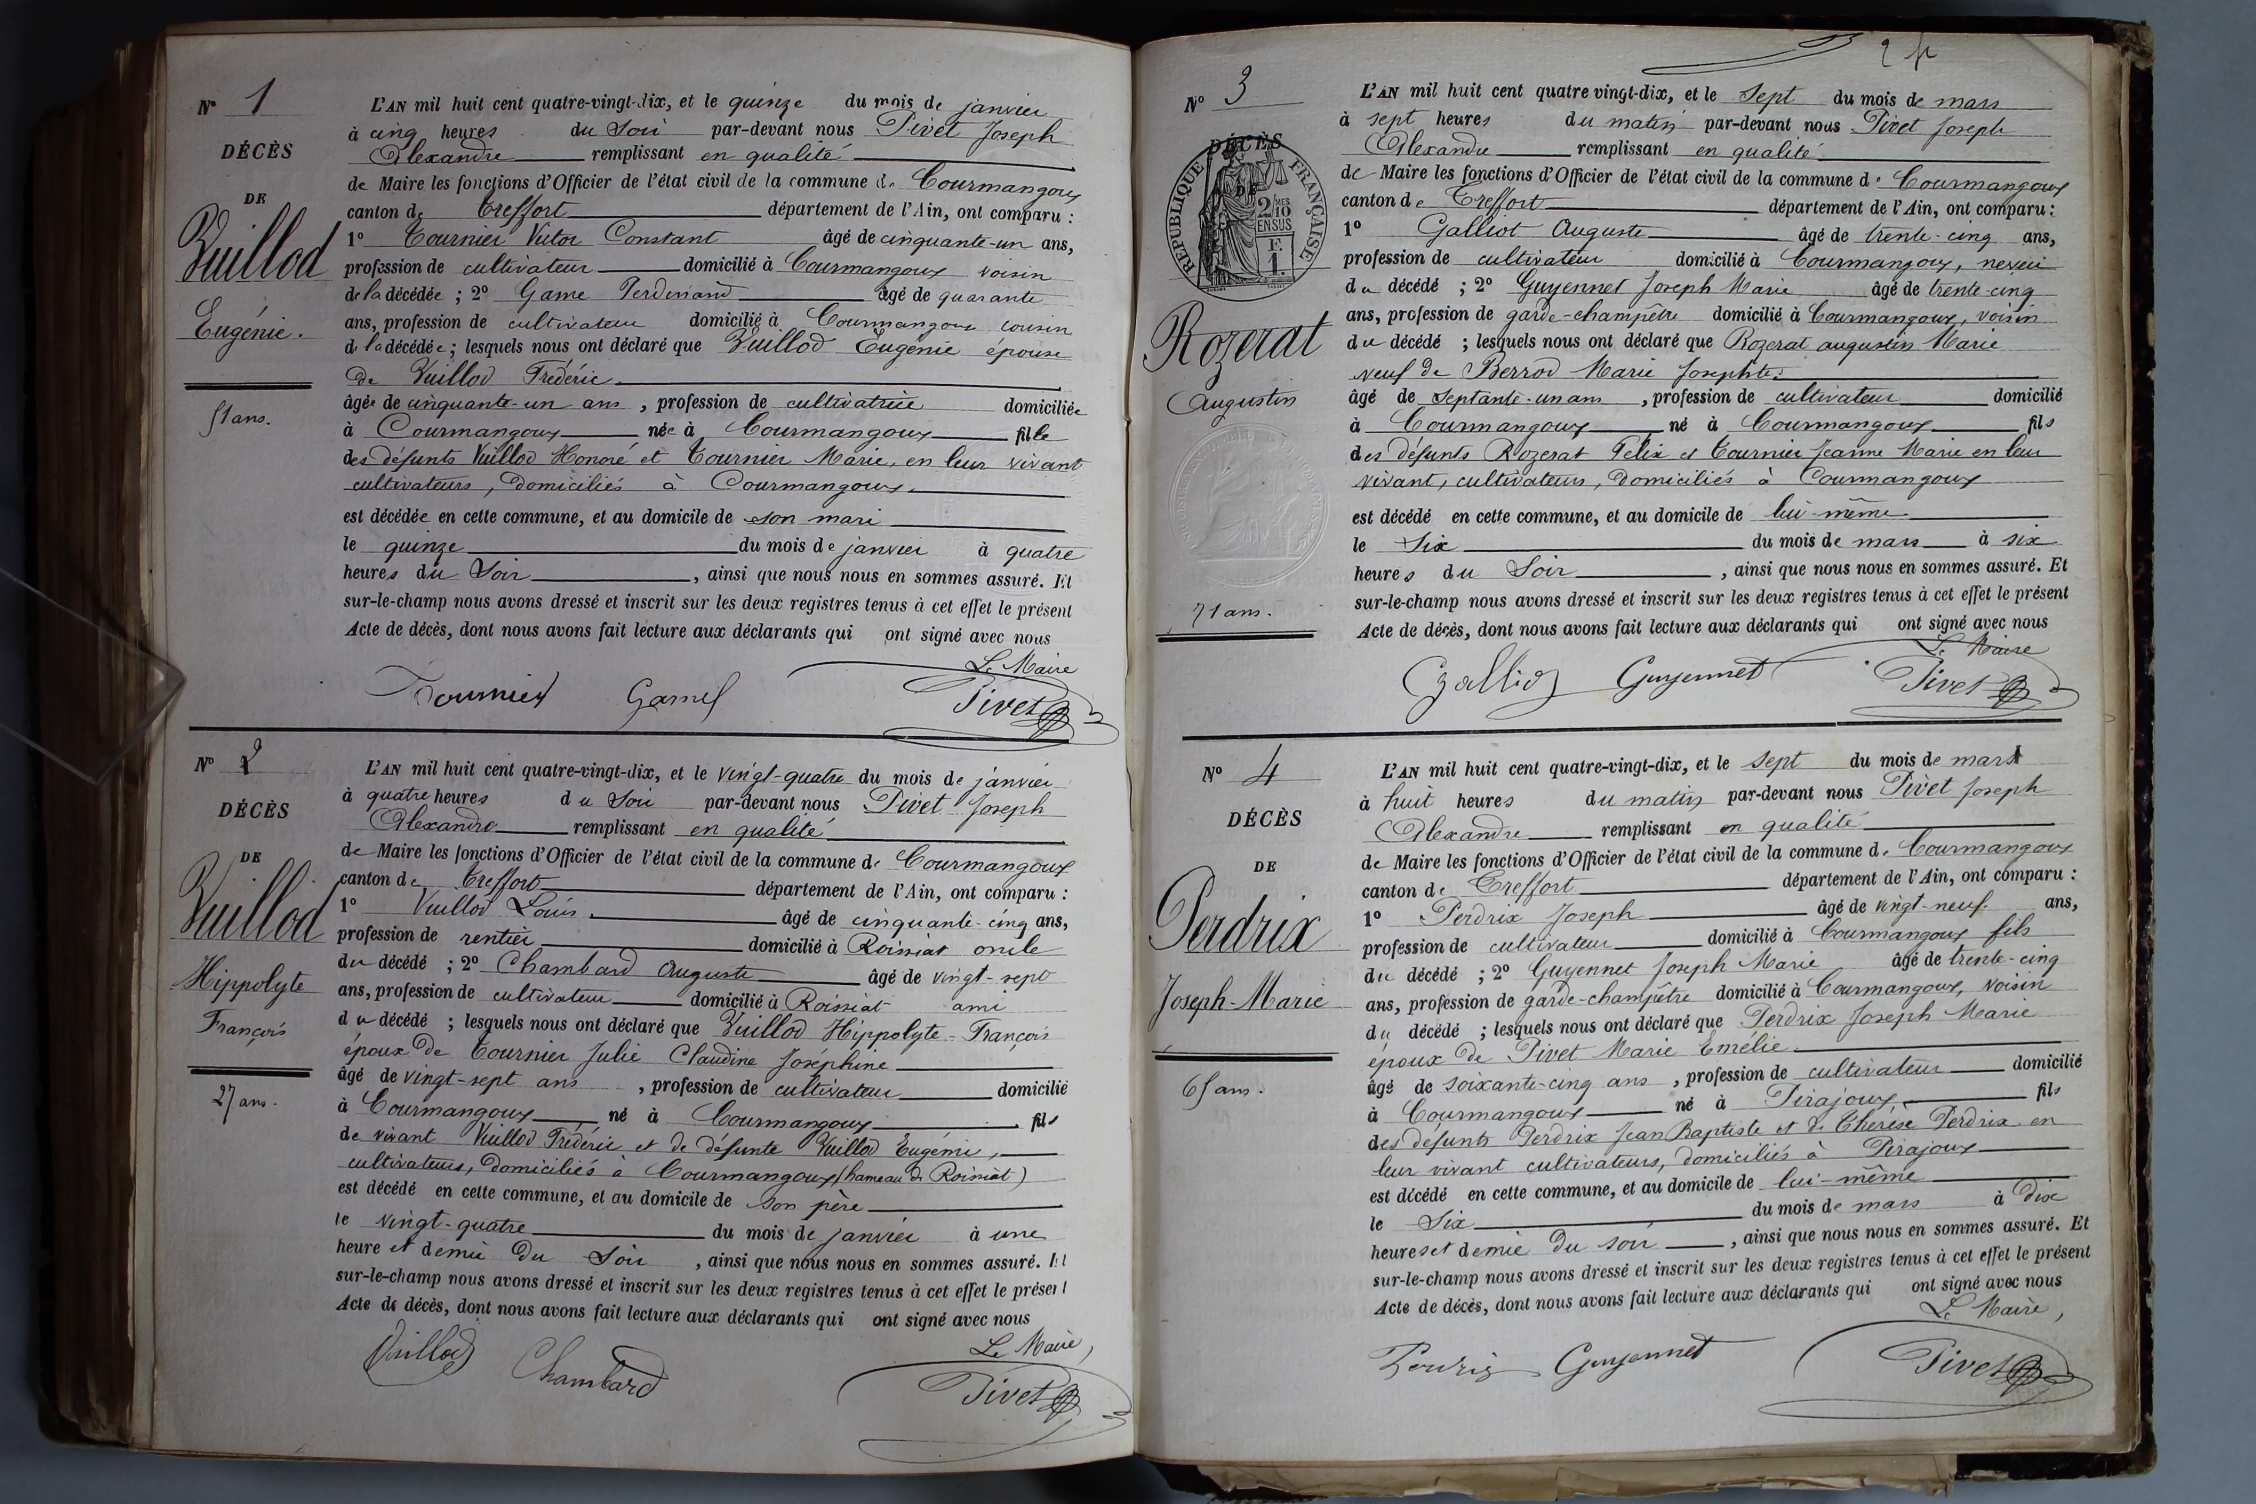 N° 1
DÉCÈS
DE
Vuillod
Eugénie.
51 ans.
L'AN mil huit cent quatre-vingt-dix, et le quinze du mois de janvier
à cinq heures du Soir par-devant nous Pivet Joseph
Alexandre remplissant en qualité
de Maire les fonctions d'Officier de l'état civil de la commune de Courmangoux
canton de Treffort département de l'Ain, ont comparu :
1° Tournier Victor Constant âgé de cinquante-un ans,
profession de cultivateur domicilié à Courmangoux voisin
de la décédée ; 2° Game Ferdinand âgé de quarante
ans, profession de cultivateur domicilié à Courmangoux cousin
de la décédée ; lesquels nous ont déclaré que Vuillod Eugénie épouse
de Vuillod Frédéric
âgée de cinquante-un ans, profession de cultivatrice domiciliée
à Courmangoux née à Courmangoux fille
des défunts Vuillod Honoré et Tournier Marie, en leur vivant
cultivateurs, domiciliés à Courmangoux.
est décédée en cette commune, et au domicile de son mari
le quinze du mois de janvier à quatre
heures du Soir, ainsi que nous nous en sommes assuré. Et
sur-le-champ nous avons dressé et inscrit sur les deux registres tenus à cet effet le présent
Acte de décès, dont nous avons fait lecture aux déclarants qui ont signé avec nous
Le Maire
Tournier Game Pivet
N° 2
DÉCÈS
DE
Vuillod
Hippolyte
François
27 ans.
L'AN mil huit cent quatre-vingt-dix, et le vingt-quatre du mois de janvier
à quatre heures du Soir par-devant nous Pivet Joseph
Alexandre remplissant en qualité
de Maire les fonctions d'Officier de l'état civil de la commune de Courmangoux
canton de Treffort département de l'Ain, ont comparu :
1° Vuillod Louis âgé de cinquante-cinq ans,
profession de rentier domicilié à Roissiat oncle
du décédé ; 2° Chambard Auguste âgé de vingt-sept
ans, profession de cultivateur domicilié à Roissiat ami
du décédé ; lesquels nous ont déclaré que Vuillod Hippolyte-François
époux de Tournier Julie Claudine Joséphine
âgé de vingt-sept ans, profession de cultivateur domicilié
à Courmangoux né à Courmangoux fils
de vivant Vuillod Frédéric et de défunte Vuillod Eugénie,
cultivateurs, domiciliés à Courmangoux (hameau de Roissiat)
est décédé en cette commune, et au domicile de son père
le vingt-quatre du mois de janvier à une
heure et demie du Soir, ainsi que nous nous en sommes assuré. Et
sur-le-champ nous avons dressé et inscrit sur les deux registres tenus à cet effet le présent
Acte de décès, dont nous avons fait lecture aux déclarants qui ont signé avec nous
Le Maire,
Vuillod Chambard Pivet
N° 3
DÉCÈS
DE
RÉPUBLIQUE FRANÇAISE
2/10 MES
EN SUS
F. 1.
Rozerat
Augustin
71 ans.
L'AN mil huit cent quatre vingt-dix, et le Sept du mois de mars
à sept heures du matin par-devant nous Pivet Joseph
Alexandre remplissant en qualité
de Maire les fonctions d'Officier de l'état civil de la commune de Courmangoux
canton de Treffort département de l'Ain, ont comparu :
1° Galliot Auguste âgé de trente-cinq ans,
profession de cultivateur domicilié à Courmangoux, neveu
du décédé ; 2° Guyennet Joseph Marie âgé de trente-cinq
ans, profession de garde-champêtre domicilié à Courmangoux, voisin
du décédé ; lesquels nous ont déclaré que Rozerat augustin Marie
veuf de Berrod Marie Josephte.
âgé de septante-un ans, profession de cultivateur domicilié
à Courmangoux né à Courmangoux fils
des défunts Rozerat Félix et Tournier Jeanne Marie en leur
vivant, cultivateurs, domiciliés à Courmangoux
est décédé en cette commune, et au domicile de lui-même
le Six du mois de mars à six
heures du Soir, ainsi que nous nous en sommes assuré. Et
sur-le-champ nous avons dressé et inscrit sur les deux registres tenus à cet effet le présent
Acte de décès, dont nous avons fait lecture aux déclarants qui ont signé avec nous
Le Maire
Galliot Guyennet Pivet
N° 4
DÉCÈS
DE
Perdrix
Joseph-Marie
65 ans.
L'AN mil huit cent quatre-vingt-dix, et le sept du mois de mars
à huit heures du matin par-devant nous Pivet Joseph
Alexandre remplissant en qualité
de Maire les fonctions d'Officier de l'état civil de la commune de Courmangoux
canton de Treffort département de l'Ain, ont comparu :
1° Perdrix Joseph âgé de vingt-neuf ans,
profession de cultivateur domicilié à Courmangoux fils
du décédé ; 2° Guyennet Joseph Marie âgé de trente-cinq
ans, profession de garde-champêtre domicilié à Courmangoux, voisin
du décédé ; lesquels nous ont déclaré que Perdrix Joseph Marie
époux de Pivet Marie Emélie.
âgé de soixante-cinq ans, profession de cultivateur domicilié
à Courmangoux né à Pirajoux fils
des défunts Perdrix Jean Baptiste et de Thérèse Perdrix en
leur vivant cultivateurs, domiciliés à Pirajoux
est décédé en cette commune, et au domicile de lui-même
le Six du mois de mars à Dix
heures et demie du soir, ainsi que nous nous en sommes assuré. Et
sur-le-champ nous avons dressé et inscrit sur les deux registres tenus à cet effet le présent
Acte de décès, dont nous avons fait lecture aux déclarants qui ont signé avec nous
Le Maire,
Perdrix Guyennet Pivet